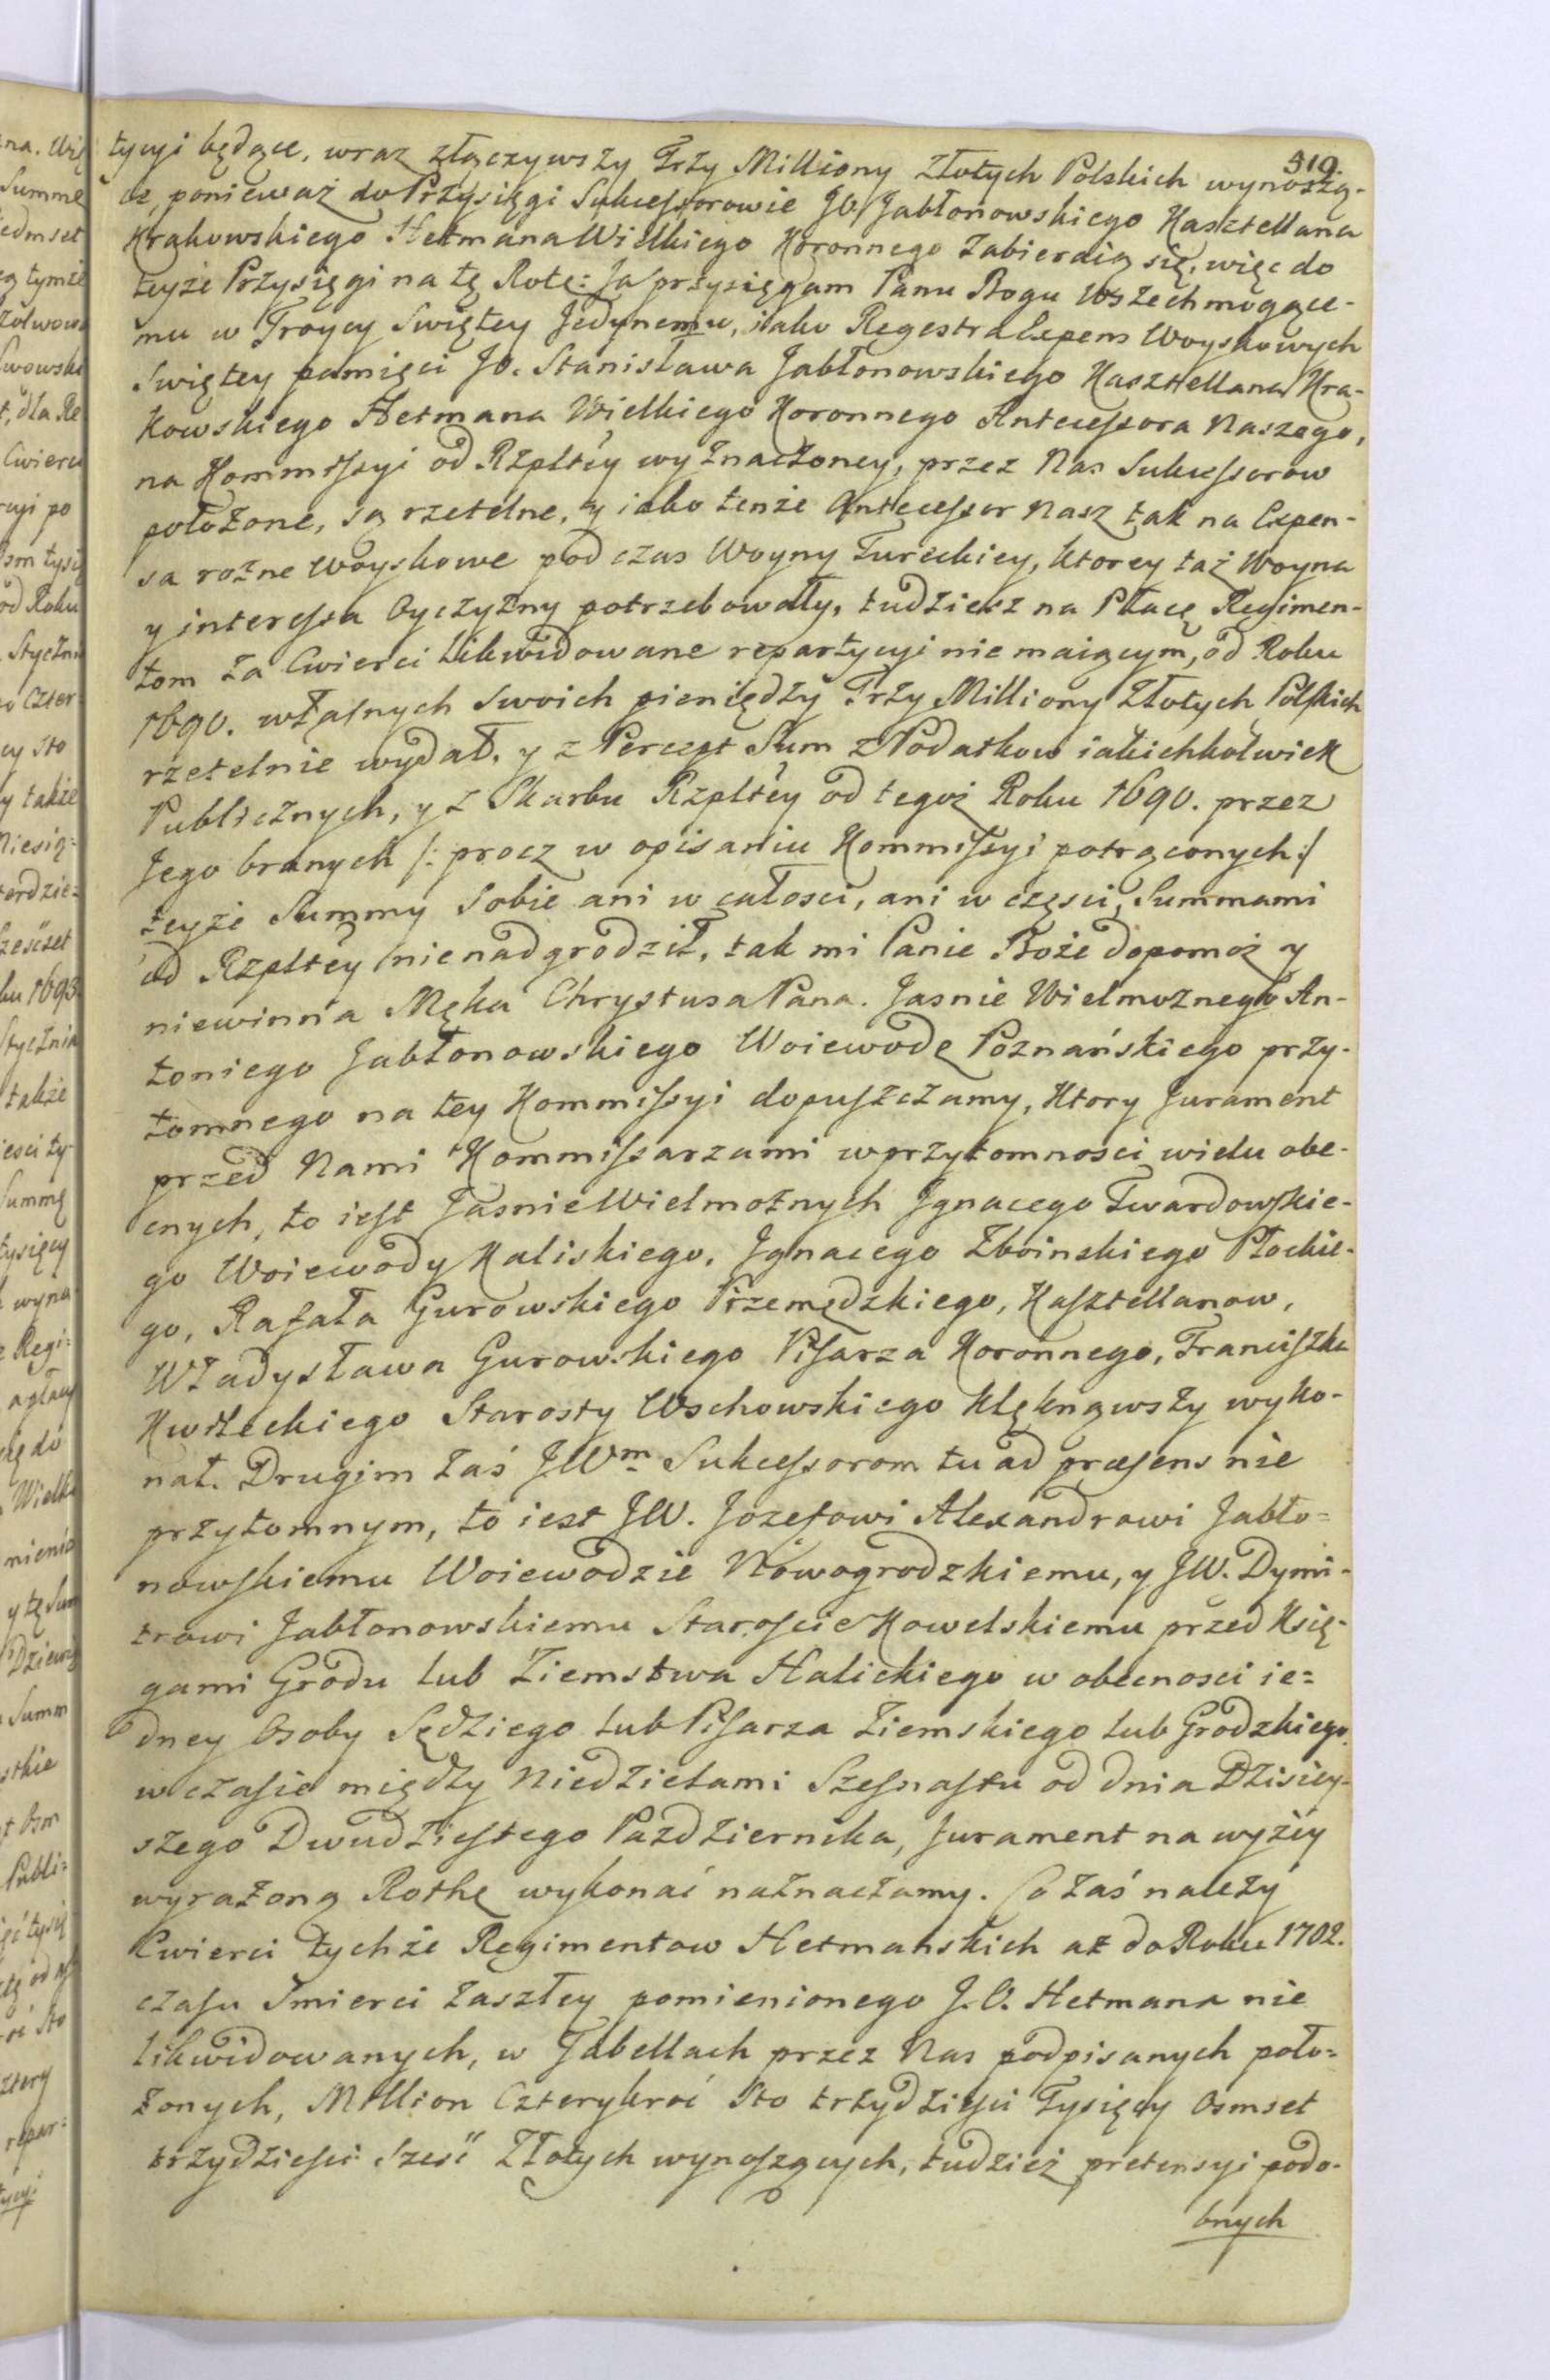 519.
tycyi będące, wraz złączywszy Trzy Milliony Złotych Polskich wynoszą-
ce, ponieważ do Przysięgi Sukcessorowie JO. Jabłonowskiego Kasztellana
Krakowskiego Hetmana Wielkiego Koronnego zabieraią się, więc do
teyże Przysięgi na tę Rotę: Ja przysięgam Panu Bogu Wszechmogące-
mu w Troycy Swiętey Jedynemu, iako Regestra Expens Woyskowych
Swiętey pamięci JO. Stanisława Jabłonowskiego Kasztellana Kra-
kowskiego Hetmana Wielkiego Koronnego Antecessora Naszego,
na Kommissyi od Rzpltey wyznaczoney, przez Nas Sukcessorow
położone, są rzetelne, y iako tenże Antecessor Nasz tak na Expen-
sa rożne Woyskowe podczas Woyny Tureckiey, ktorey taż Woyna
y interessa Oyczyzny potrzebowały, tudziesz na Płacę Regimen-
tom za Cwierci Likwidowane repartycyi nie maiącym, od Roku
1690. własnych Swoich pieniędzy Trzy Milliony Złotych Polskich
rzetelnie wydał, y z Percept Sum z Podatkow iakichkolwiek
Publicznych, y z Skarbu Rzpltey od tegoż Roku 1690. przez
Jego branych /: procz w opisaniu Kommissyi potrąconych :/
teyże Summy Sobie ani w całosci, ani w częsci, Summami
od Rzpltey nienadgrodził, tak mi Panie Boże dopomoż y
niewinna Męka Chrystusa Pana. Jasnie Wielmożnego An-
toniego Jabłonowskiego Woiewodę Poznańskiego przy-
tomnego na tey Kommissyi dopuszczamy, Ktory Jurament
przed Nami Kommissarzami w przytomnosci wielu obe-
cnych, to iest Jasnie Wielmożnych Jgnacego Twardowskie-
go Woiewody Kaliskiego, Jgnacego Zboinskiego Płockie-
go, Rafała Gurowskiego Przemędzkiego, Kasztellanow,
Władysława Gurowskiego Pisarza Koronnego, Franciszka
Kwileckiego Starosty Wschowskiego klęknąwszy wyko-
nał. Drugim zaś JWm Sukcessorom tu ad præsens nie
przytomnym, to iest JW. Jozefowi Alexandrowi Jabło=
nowskiemu Woiewodzie Nowogrodzkiemu, y JW. Dymi-
trowi Jabłonowskiemu Staroscie Kowelskiemu przed Księ-
gami Grodu lub Ziemstwa Halickiego w obecnosci ie=
dney Osoby Sędziego lub Pisarza Ziemskiego lub Grodzkiego
w czasie między Niedzielami Szesnastu od dnia Dzisiey-
szego Dwudziestego Pazdziernika, Jurament na wyżey
wyrażoną Rothę wykonać naznaczamy. Co zaś należy
Cwierci tychże Regimentow Hetmańskich aż do Roku 1702.
czasu Smierci zaszłey pomienionego J.O. Hetmana nie
likwidowanych, w Tabellach przez Nas podpisanych poło=
żonych, Million Czterykroć Sto trzydzieści Tysięcy Osmset
trzydziesci Sześć Złotych wynoszących, tudzież pretensyi podo-
bnych